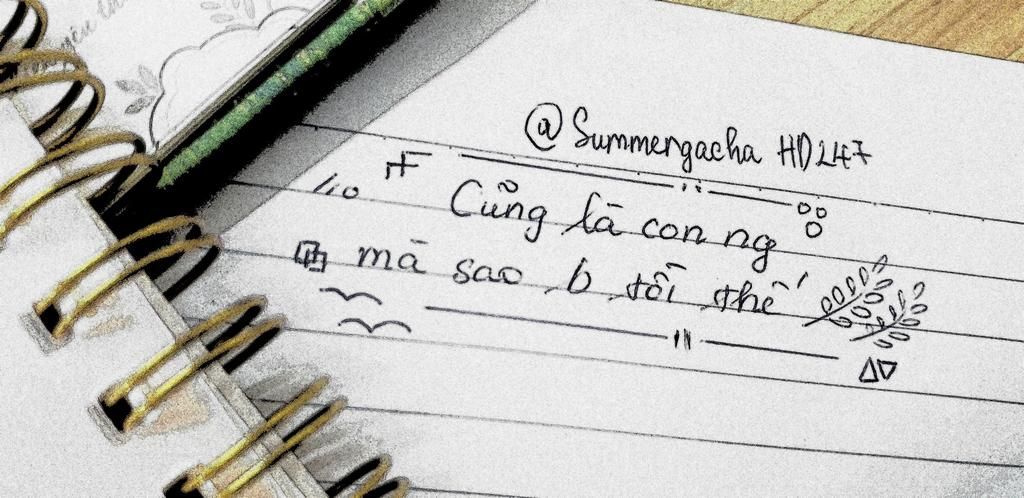 @Summergacha HD247
Cũng là con ng
mà sao b tồi thế